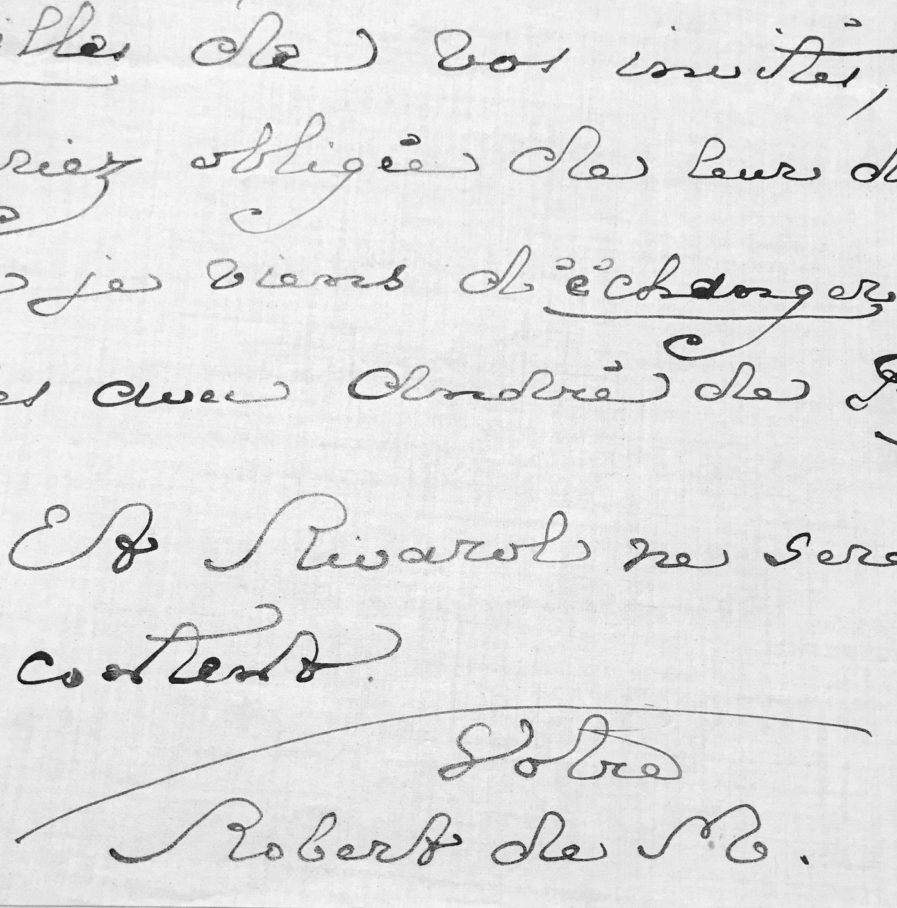 illes de vos invités,
riez obligée de leur d
je viens d'échanger
es avec André de
Et Rivarol ne sera
content.
Votre
Robert de M.